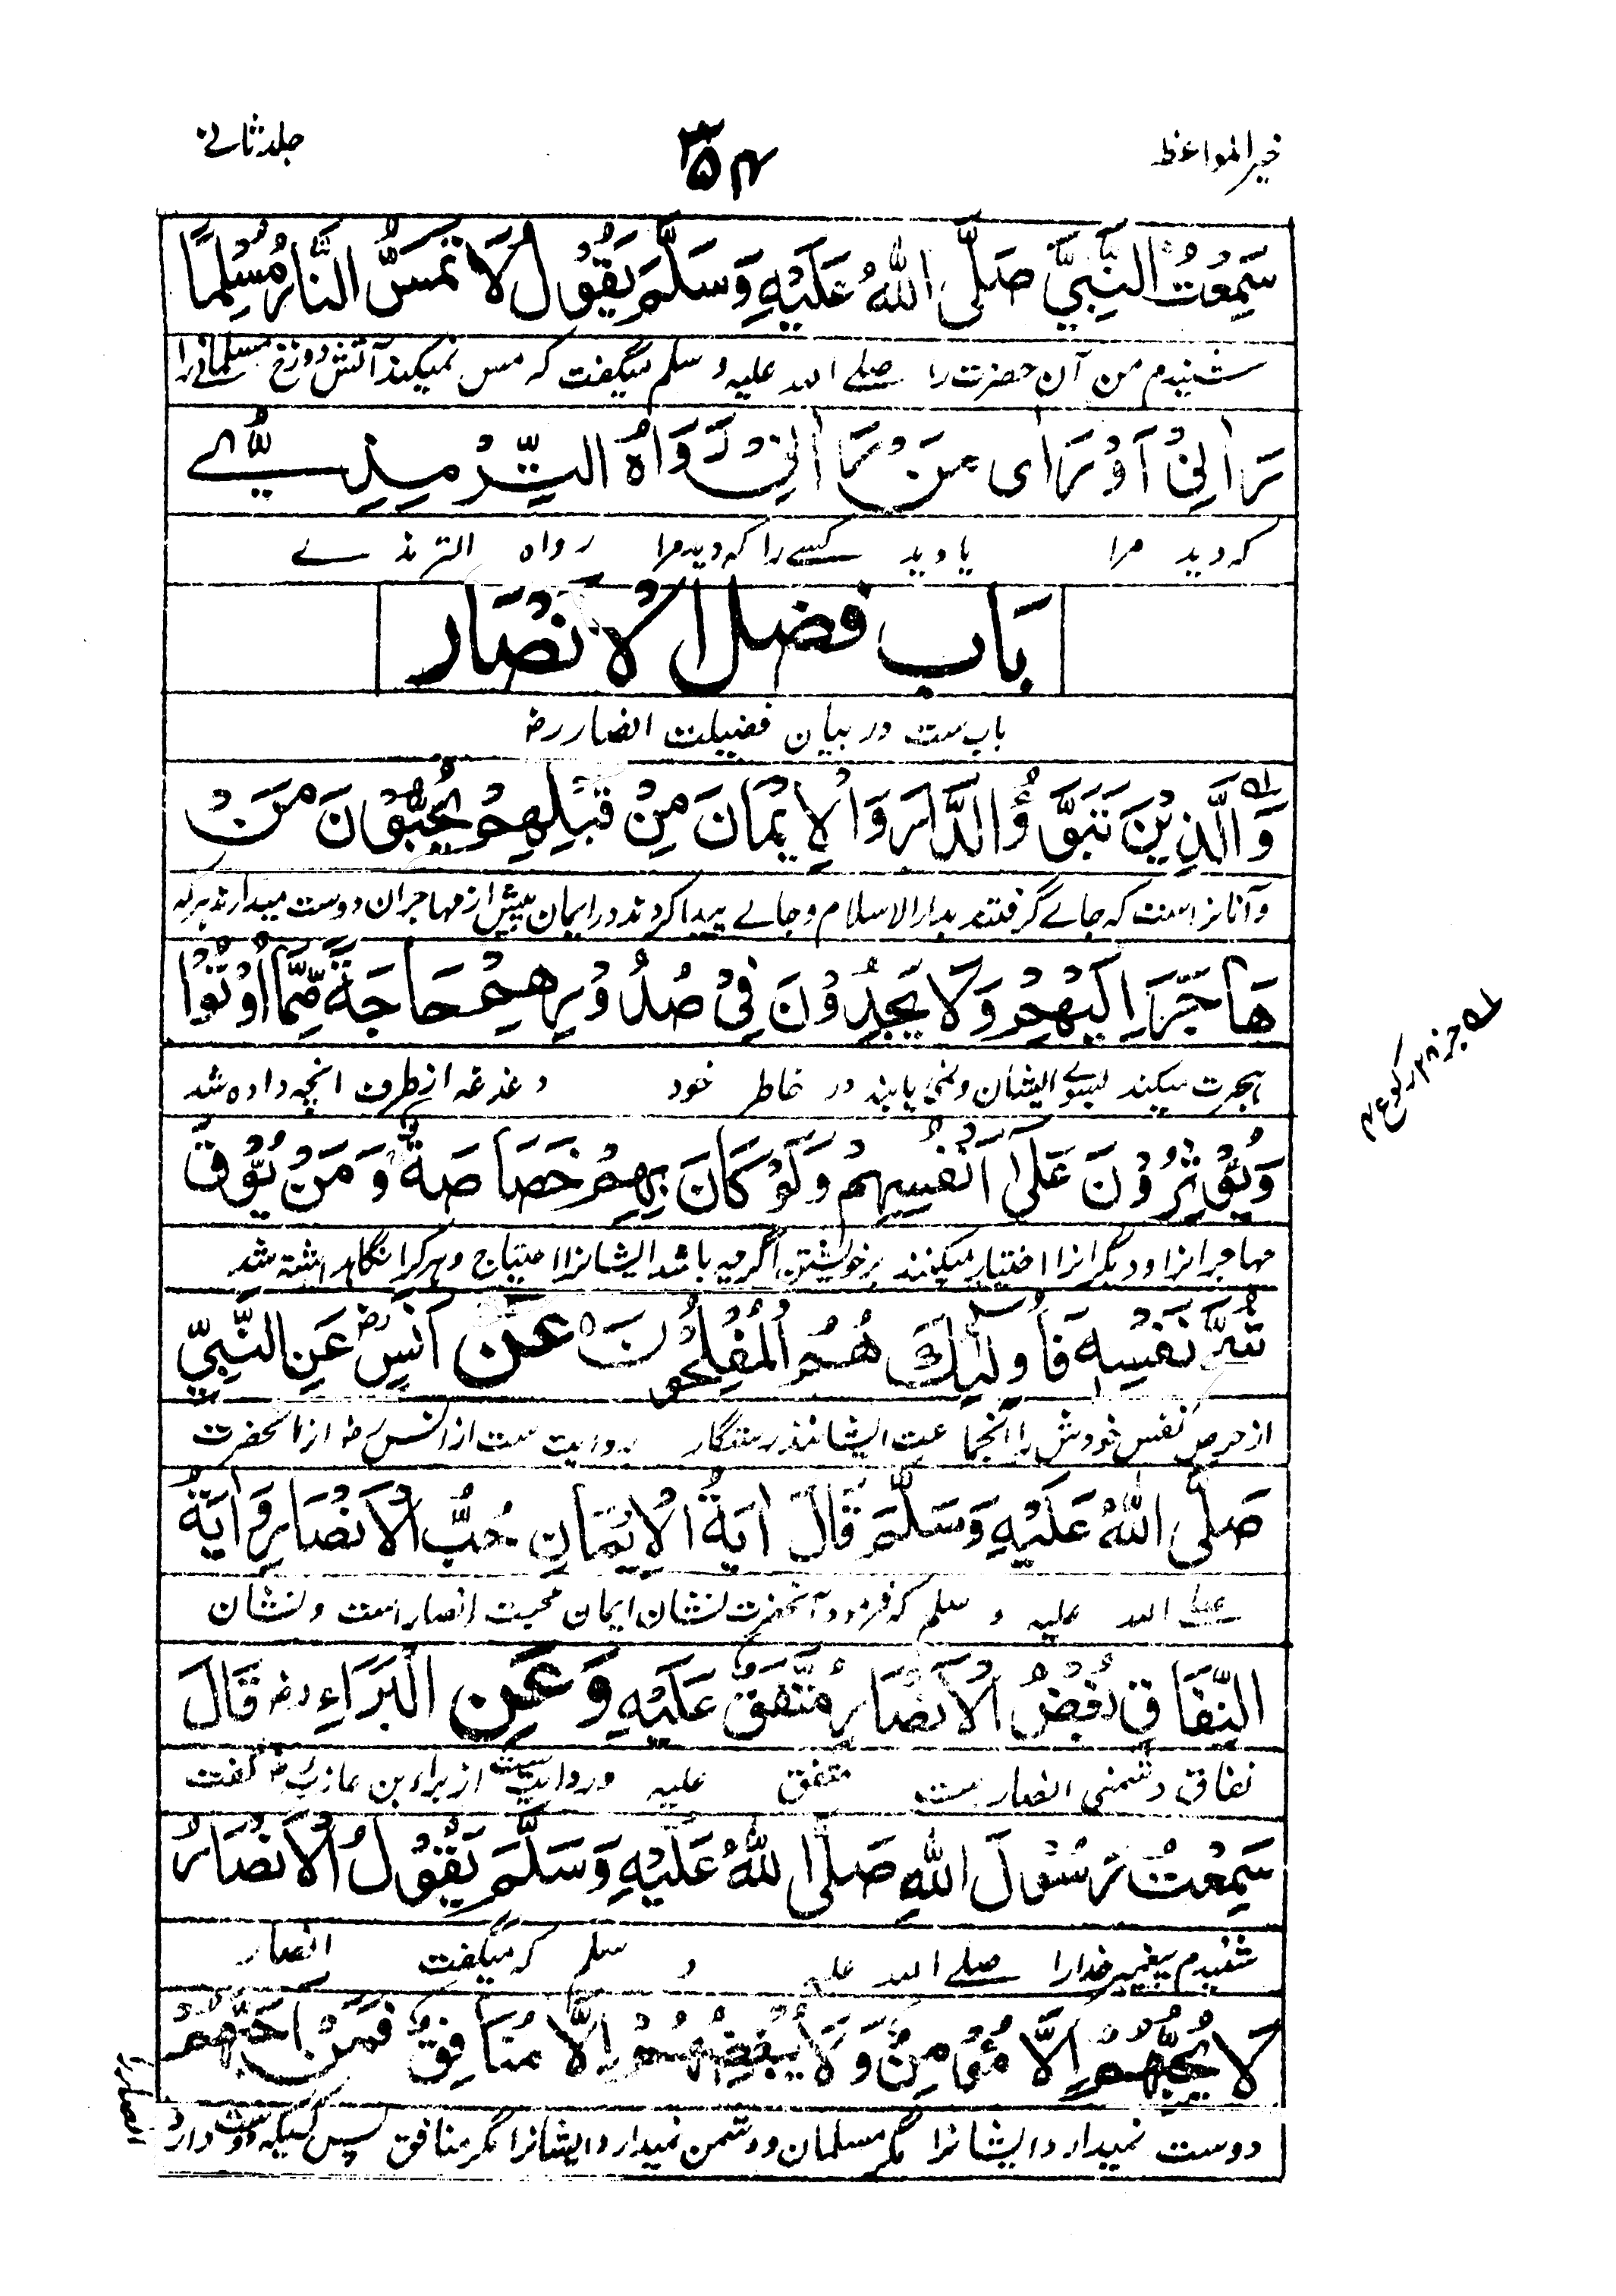 خیر المواعظ ۳۵۴ جلد ثانی
سَمِعْتُ النَّبِيَّ صَلَّى اللهُ عَلَيْهِ وَسَلَّمَ يَقُوْلُ لَا تَمَسُّ النَّارُ مُسْلِمًا
شنیدم من آن حضرت را صلے الله علیه و سلم میگفت که مس نمیکند آتش دوزخ مسلمانی را
رَاٰنِيْ اَوْ رَاٰى مَنْ رَاٰنِيْ رَوَاهُ التِّرْمِذِيُّ
که دید مرا یا دید کسے را که دید مرا رواه الترمذے
بَاب فضل الْاَنْصَار
باب ست در بیان فضیلت انصار رض
وَالَّذِيْنَ تَبَوَّؤُ الدَّارَ وَالْاِيْمَانَ مِنْ قَبْلِهِمْ يُحِبُّوْنَ مَنْ
و آنانراست که جاے گرفتند بدار الاسلام و جاے پیدا کردند در ایمان پیش از مهاجران دوست میدارند هر که
هَاجَرَ اِلَيْهِمْ وَلَا يَجِدُوْنَ فِيْ صُدُوْرِهِمْ حَاجَةً مِّمَّا اُوْتُوْا
هجرت میکند بسوے ایشان و نمی یابند در خاطر خود دغدغه از طرف انچه داده شد
جز ۲۸ رکوع ۴
وَيُؤْثِرُوْنَ عَلٰى اَنْفُسِهِمْ وَلَوْ كَانَ بِهِمْ خَصَاصَةٌ وَمَنْ يُّوْقَ
مهاجرانرا و دیگرانرا اختیار میکنند بر خویشتن اگرچه باشد ایشانرا احتیاج و هر کرا نگاهداشته شد
شُحَّ نَفْسِهٖ فَاُولٰئِكَ هُمُ الْمُفْلِحُوْنَ عَنْ اَنَسٍ رض عَنِ النَّبِيِّ
از حرص نفس خودش را انجماعت ایشانند رستگار روایت ست از انس رض از انحضرت
صَلَّى اللهُ عَلَيْهِ وَسَلَّمَ قَالَ اٰيَةُ الْاِيْمَانِ حُبُّ الْاَنْصَارِ وَاٰيَةُ
صلے الله علیه و سلم که فرمود آنحضرت نشان ایمان محبت انصار است و نشان
النِّفَاقِ بُغْضُ الْاَنْصَارِ مُتَّفَقٌ عَلَيْهِ وَعَنِ الْبَرَاءِ رض قَالَ
نفاق دشمنی انصار ست متفق علیه و روایت ست از براء بن عازب رض گفت
سَمِعْتُ رَسُوْلَ اللهِ صَلَّى اللهُ عَلَيْهِ وَسَلَّمَ يَقُوْلُ الْاَنْصَارُ
شنیدم پیغمبر خدا را صلے الله علیه و سلم که میگفت انصار
لَا يُحِبُّهُمْ اِلَّا مُؤْمِنٌ وَلَا يُبْغِضُهُمْ اِلَّا مُنَافِقٌ فَمَنْ اَحَبَّهُمْ
دوست نمیدارد ایشانرا مگر مسلمان و دشمن نمیدارد ایشانرا مگر منافق پس کسیکه دوست دارد
انصار را